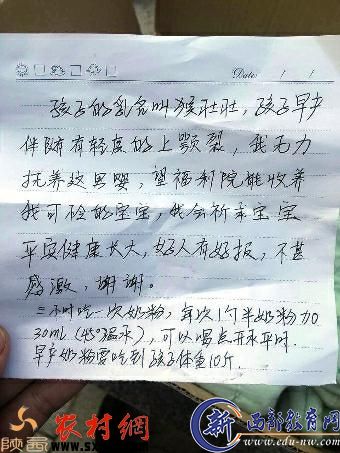 Date: / /
孩子的乳名叫猴壮壮，孩子早产
伴随有轻度的上颚裂，我无力
抚养这男婴，望福利院能收养
我可怜的宝宝，我会祈求宝宝
平安健康长大，好人有好报，不甚
感激，谢谢。
三小时吃一次奶粉，每次1个半奶粉加
30mL（45°温水），可以喝点开水平时.
早产奶粉要吃到孩子体重10斤.
陕西
农村網
www.sx
新
西部教育网
www.edu-nw.com